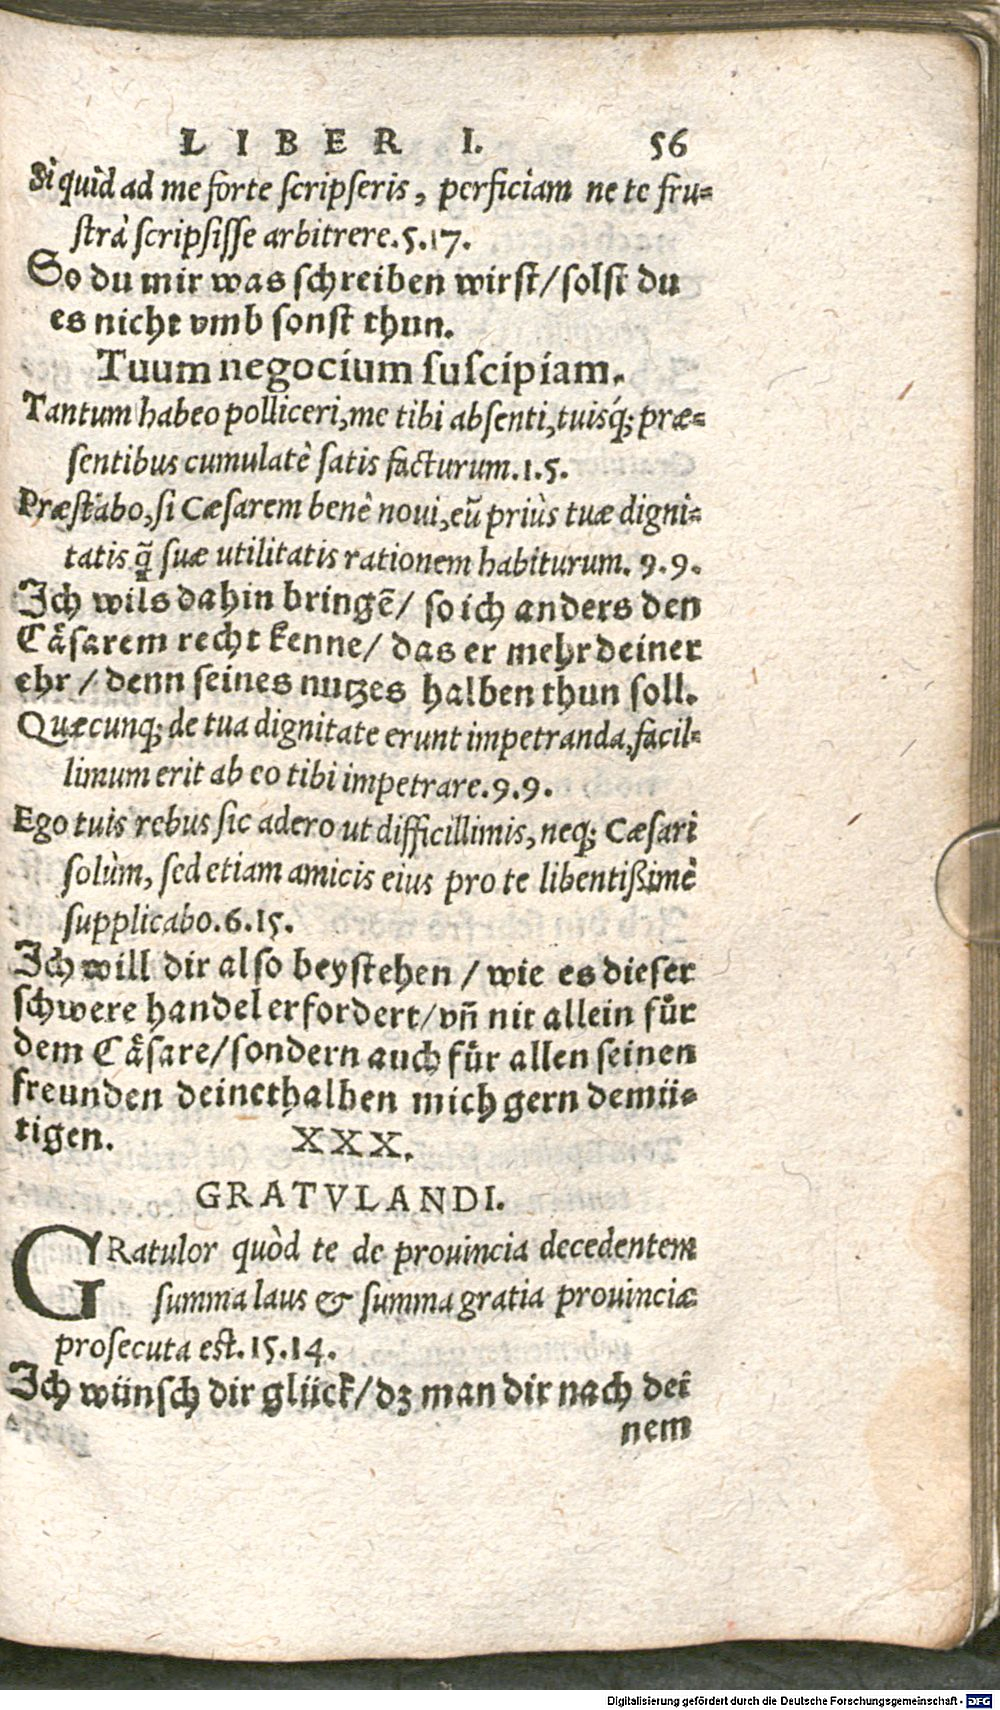 LIBER I. 56
Si quid ad me forte scripseris, perficiam ne te fru-
strà scripsisse arbitrere. 5. 17.
So du mir was schreiben wirst/ solst du
es nicht vmb sonst thun.
Tuum negocium suscipiam.
Tantum habeo polliceri, me tibi absenti, tuisq́; præ-
sentibus cumulatè satis facturum. 1. 5.
Præstabo, si Cæsarem benè noui, eũ priùs tuæ digni-
tatis q̃ suæ utilitatis rationem habiturum. 9. 9.
Ich wils dahin bringẽ/ so ich anders den
Cåsarem recht kenne/ das er mehr deiner
ehr / denn seines nutzes halben thun soll.
Quæcunq; de tua dignitate erunt impetranda, facil-
limum erit ab eo tibi impetrare. 9. 9.
Ego tuis rebus sic adero ut difficillimis, neq; Cæsari
solùm, sed etiam amicis eius pro te libentißimè
supplicabo. 6. 15.
Ich will dir also beystehen / wie es dieser
schwere handel erfordert/ vñ nit allein fůr
dem Cåsare/ sondern auch fůr allen seinen
freunden deinethalben mich gern demü-
tigen. XXX.
GRATVLANDI.
GRatulor quòd te de prouincia decedentem
summa laus & summa gratia prouinciæ
prosecuta est. 15. 14.
Ich wünsch dir glück/ dz man dir nach dei
nem
Digitalisierung gefördert durch die Deutsche Forschungsgemeinschaft - DFG